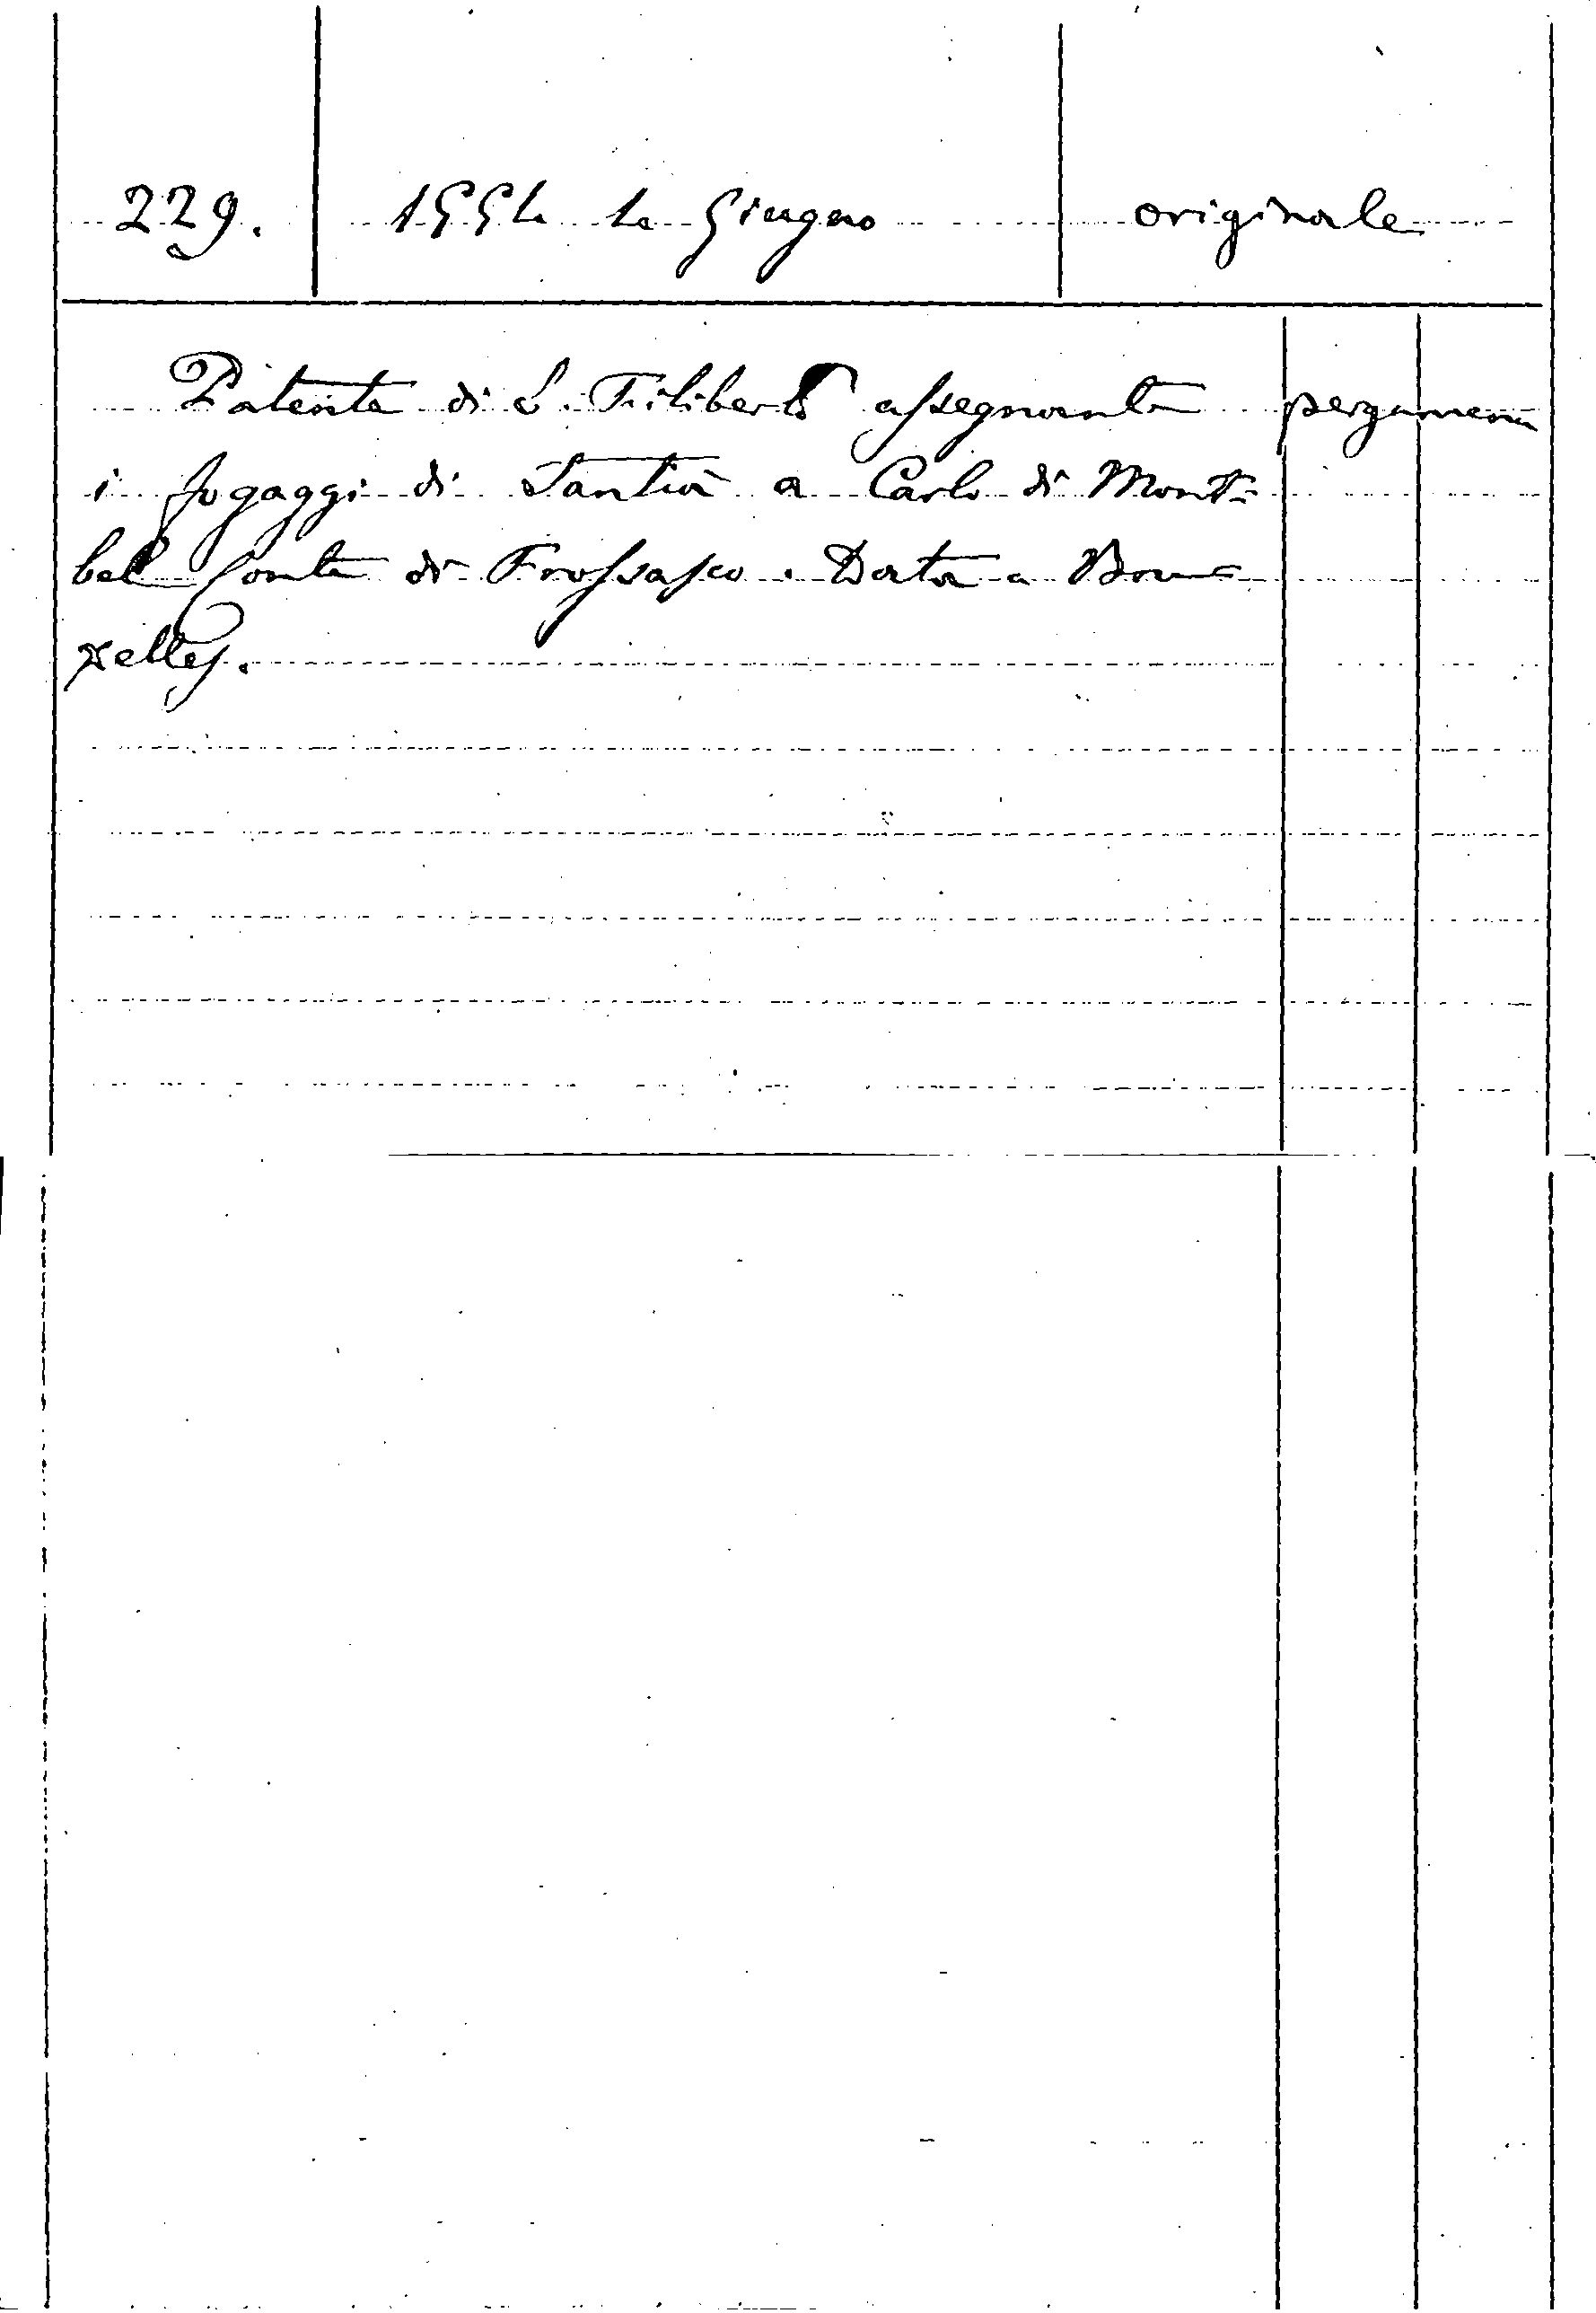 229. 1554 4 Giugno originale
Patente di E. Filiberto assegnante pergamena
i fogaggi di Santià a Carlo di Mont=
bel Conte di Frossasco. Data a Brou=
xelles.